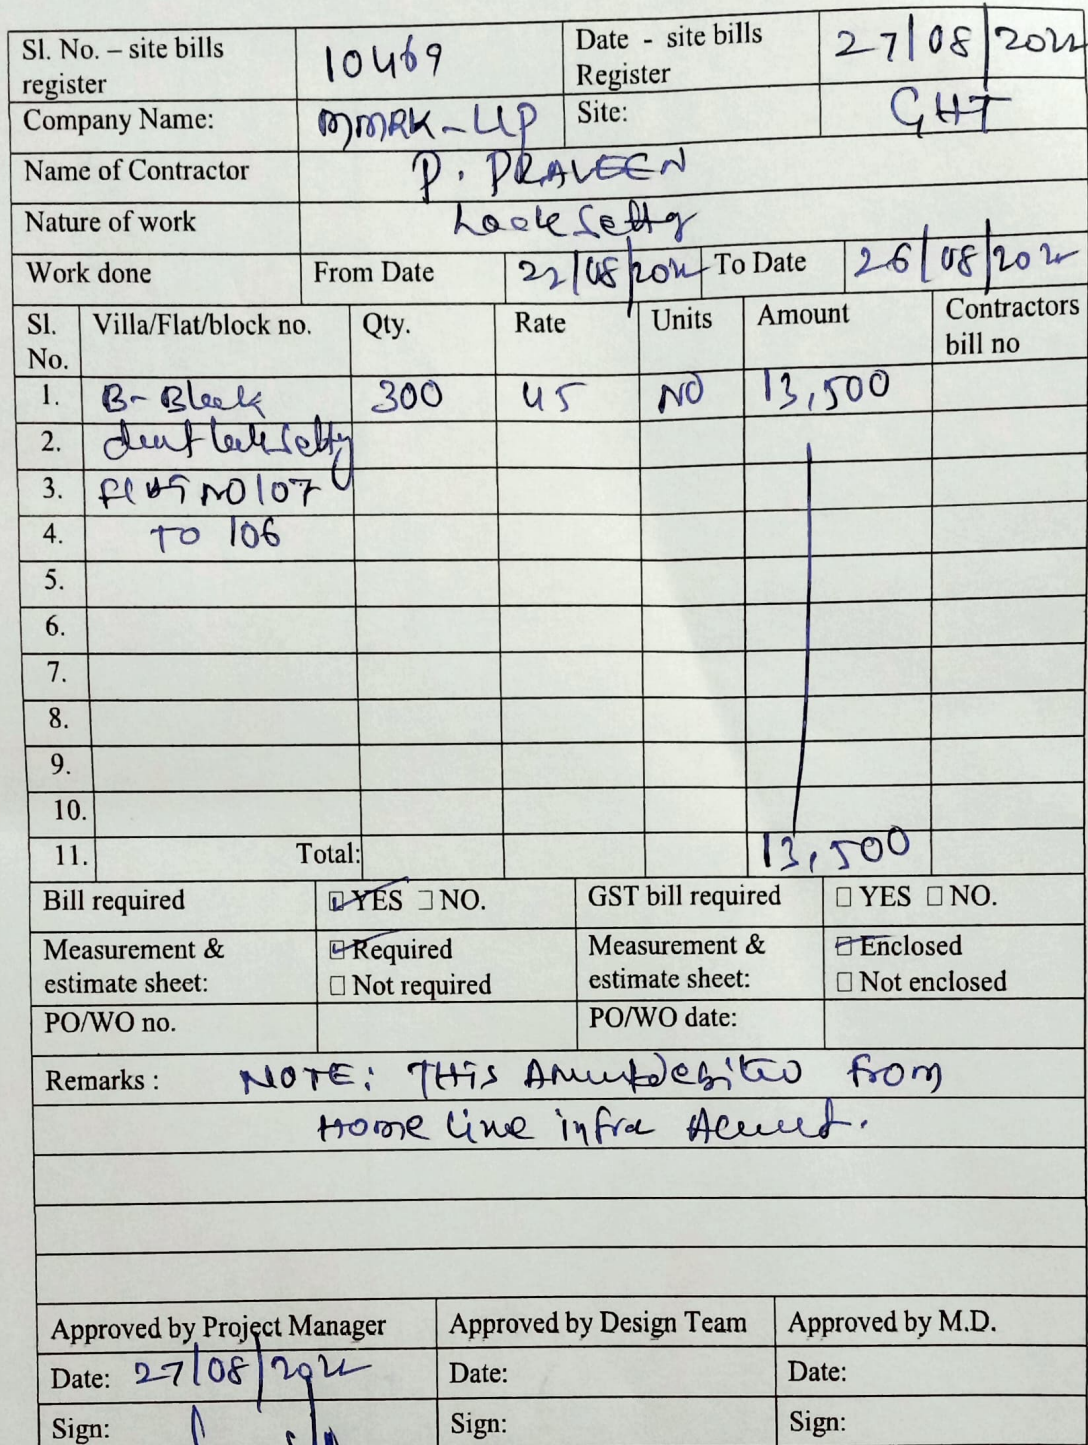 Sl. No. – site bills register 10469 Date - site bills Register 27/08/2022
Company Name: MMRK-LLP Site: GHT
Name of Contractor P. PRAVEEN
Nature of work Lock
Work done From Date 22/08/2022 To Date 26/08/2022
Sl. No. Villa/Flat/block no. Qty. Rate Units Amount Contractors bill no
1. B-Block 300 45 NO 13,500
2.
3. NO 107
4. TO 106
5.
6.
7.
8.
9.
10.
11. Total: 13,500
Bill required YES NO. GST bill required YES NO.
Measurement & estimate sheet: Required Not required Measurement & estimate sheet: Enclosed Not enclosed
PO/WO no. PO/WO date:
Remarks : NOTE: THis from
Home line infra
Approved by Project Manager Approved by Design Team Approved by M.D.
Date: 27/08/2022 Date: Date:
Sign: Sign: Sign: